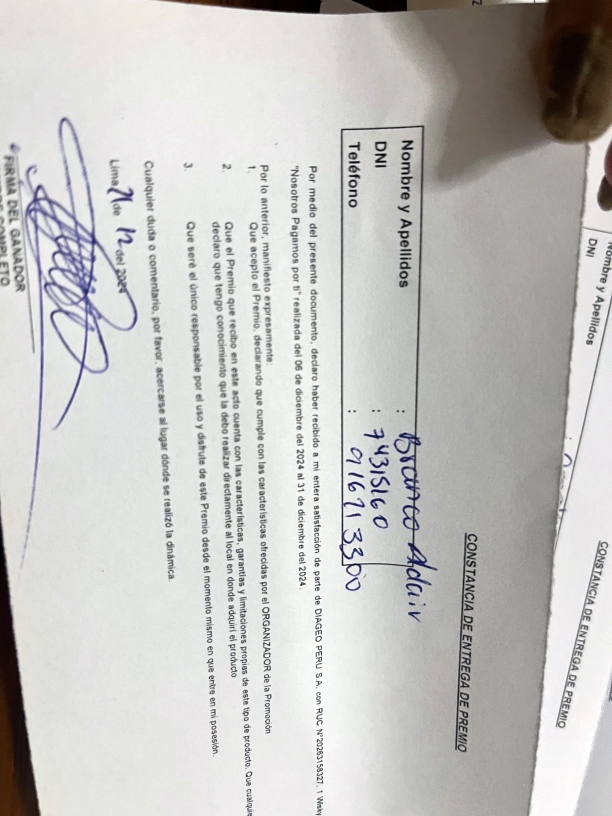 CONSTANCIA DE ENTREGA DE PREMIO
Nombre y Apellidos : Branco Adair
DNI : 74315160
Teléfono : 916713300
Por medio del presente documento, declaro haber recibido a mi entera satisfacción de parte de DIAGEO PERU S.A. con RUC N°20263158327, 1 Wisky
"Nosotros Pagamos por ti" realizada del 06 de diciembre del 2024 al 31 de diciembre del 2024.
Por lo anterior, manifiesto expresamente:
1. Que acepto el Premio, declarando que cumple con las características ofrecidas por el ORGANIZADOR de la Promoción
2. Que el Premio que recibo en este acto cuenta con las características, garantías y limitaciones propias de este tipo de producto. Que cualquie
declaro que tengo conocimiento que la debo realizar directamente al local en donde adquirí el producto
3. Que seré el único responsable por el uso y disfrute de este Premio desde el momento mismo en que entre en mi posesión.
Cualquier duda o comentario, por favor, acercarse al lugar dónde se realizó la dinámica.
Lima 21 de 12 del 2024
FIRMA DEL GANADOR
COMPLETO
CONSTANCIA DE ENTREGA DE PREMIO
Nombre y Apellidos
DNI